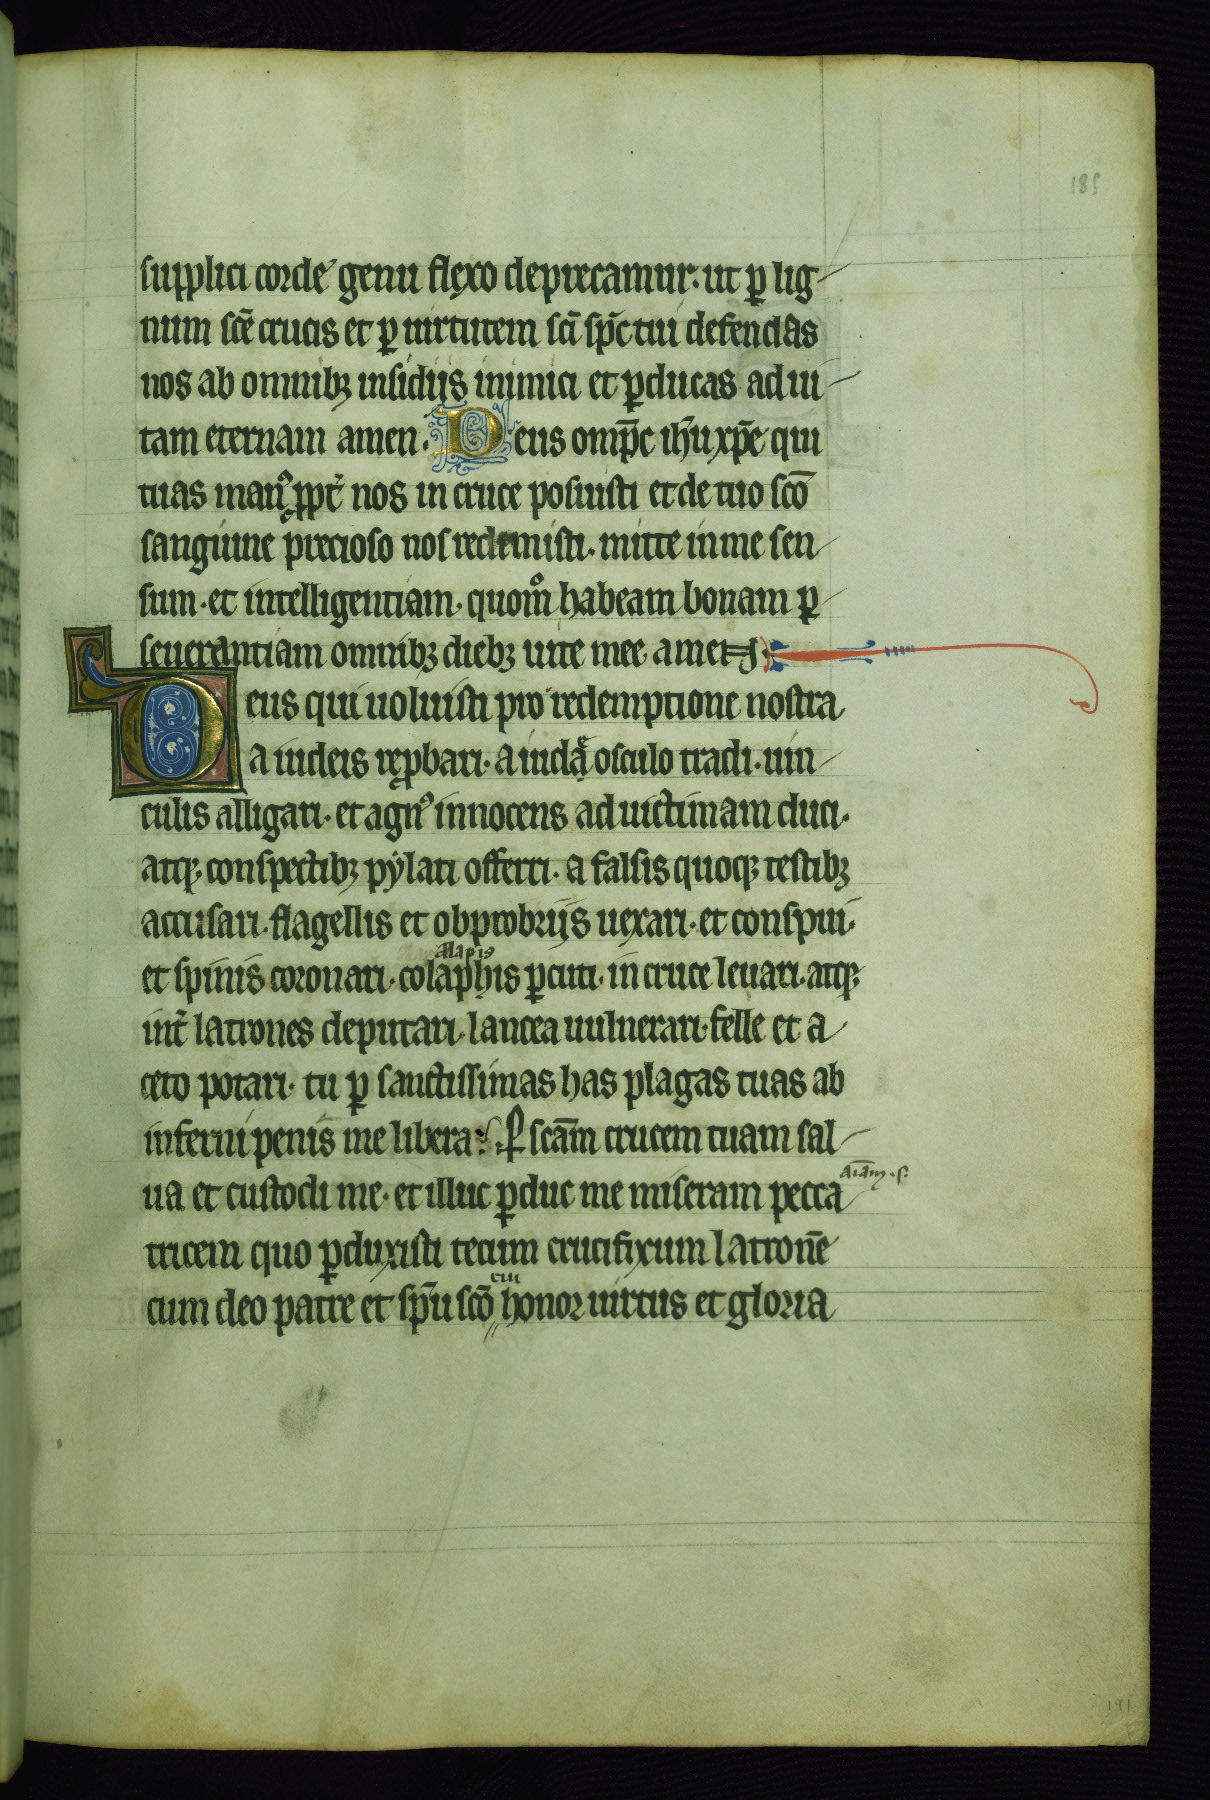 185
supplici corde genu flexo deprecamur. ut ꝑ lig
num scē crucis et ꝑ uirtutem scī sp̄c tui defendas
nos ab omnibꝫ insidijs inimici et ꝑducas ad ui
tam eternam amen. Deus omp̄c ih̄u xp̄e qui
tuas manꝰ ꝓpt̄ nos in cruce posuisti et de tuo scō
sanguine precioso nos redemisti. mitte in me sen
sum. et intelligentiam. quom̊ habeam bonam ꝑ
seuerantiam omnibꝫ diebꝫ uite mee amen
Deus qui uoluisti pro redemptione nostra
a iudeis reꝓbari. a iuda osculo tradi. uin
culis alligari. et agnꝰ innocens ad uictimam duci.
atqꝫ conspectibꝫ pẏlati offerri. a falsis quoqꝫ testibꝫ
accusari. flagellis et obprobrijs uexari. et conspui.
alapis
et spinis coronari. colaphis ꝑcuti. in cruce leuari. atqꝫ
int̄ latrones deputari. lancea uulnerari. felle et a
ceto potari. tu ꝑ sanctissimas has plagas tuas ab
inferni penis me libera. ꝑ scām crucem tuam sal
ua et custodi me. et illuc ꝑduc me miseram pecca
tricem quo ꝑduxisti tecum crucifixum latronē
cui
cum deo patre et sp̄u scō honor uirtus et gloria
191